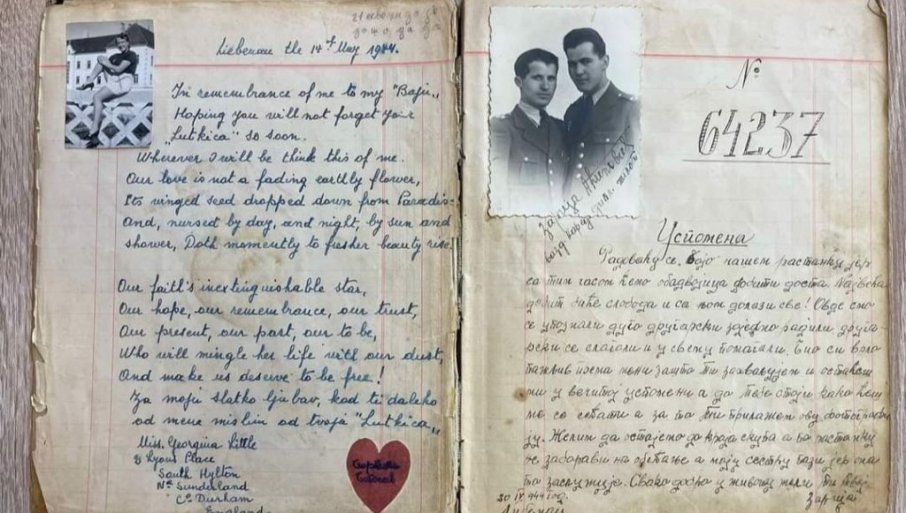 Liebenau the 14th May 1944.
In remembrance of me to my "Baju"
Hoping you will not forget your
"Lutkica" so soon.
Wherever I will be think this of me.
Our love is not a fading earthly flower,
Its winged seed dropped down from Paradis-
And, nursed by day, and night, by sun and
shower, Doth momently to fresher beauty rise.
Our faith's inextinguishable star,
Our hope, our remembrance, our trust,
Our present, our past, our to be,
Who will mingle her life with our dust,
And make us deserve to be free!
Za moju slatko ljubav, kad ti daleko
od mene mislim od tvoja "Lutkica"
Miss. Georgina Little
8 Lyons Place
South Hylton
Nr Sunderland
Co Durham
England
No
64237
Успомена
Радоваћу се, Бојо нашем растанку јер
са тим часом ћемо обадвојица добити доста Највећа
добит биће слобода и са њом долази све! Овде смо
се упознали дуго другарски заједно радили друга-
рски се слагали и у свему помагали. Био си врло
пажљив према мени зашто ти захваљујем и остајеш
ми у вечитој успомени а до тебе стоји како ћеш
ме се сећати а за то ти прилажем ову фотографи-
ју. Желим да останемо до краја скупа а по растанку
не заборави на обећање а моју сестру пази јер она
то заслужује. Свако добро у животу жели ти твој
20 IX 944 год. Зарија